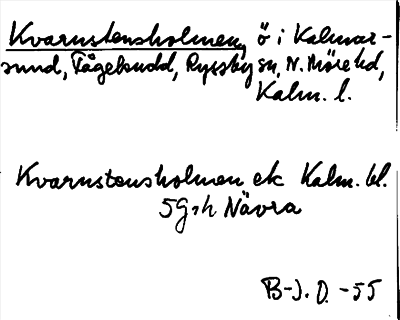 Kvarnstensholmen, ö i Kalmar-
sund, Tågeludd, Ryssby sn, N. Möre hd,
Kalm. l.
Kvarnstensholmen ek Kalm. bl.
5 G:h Nävra
B-J. O. -55